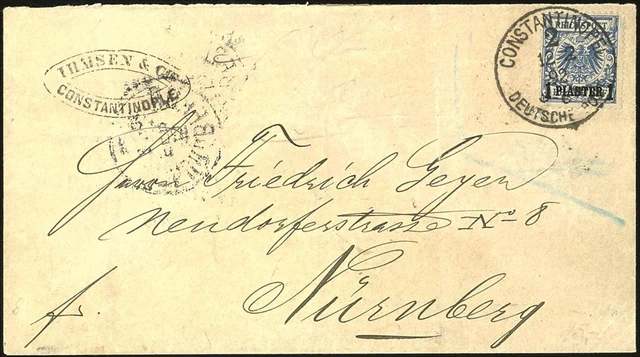 IHMSEN & Co
CONSTANTINOPLE
CONSTANTINOPEL
DEUTSCHE POST
REICHSPOST
1 PIASTER 1
Herrn Friedrich Geyer
Neudorferstrasse No 8
Nürnberg
fr.